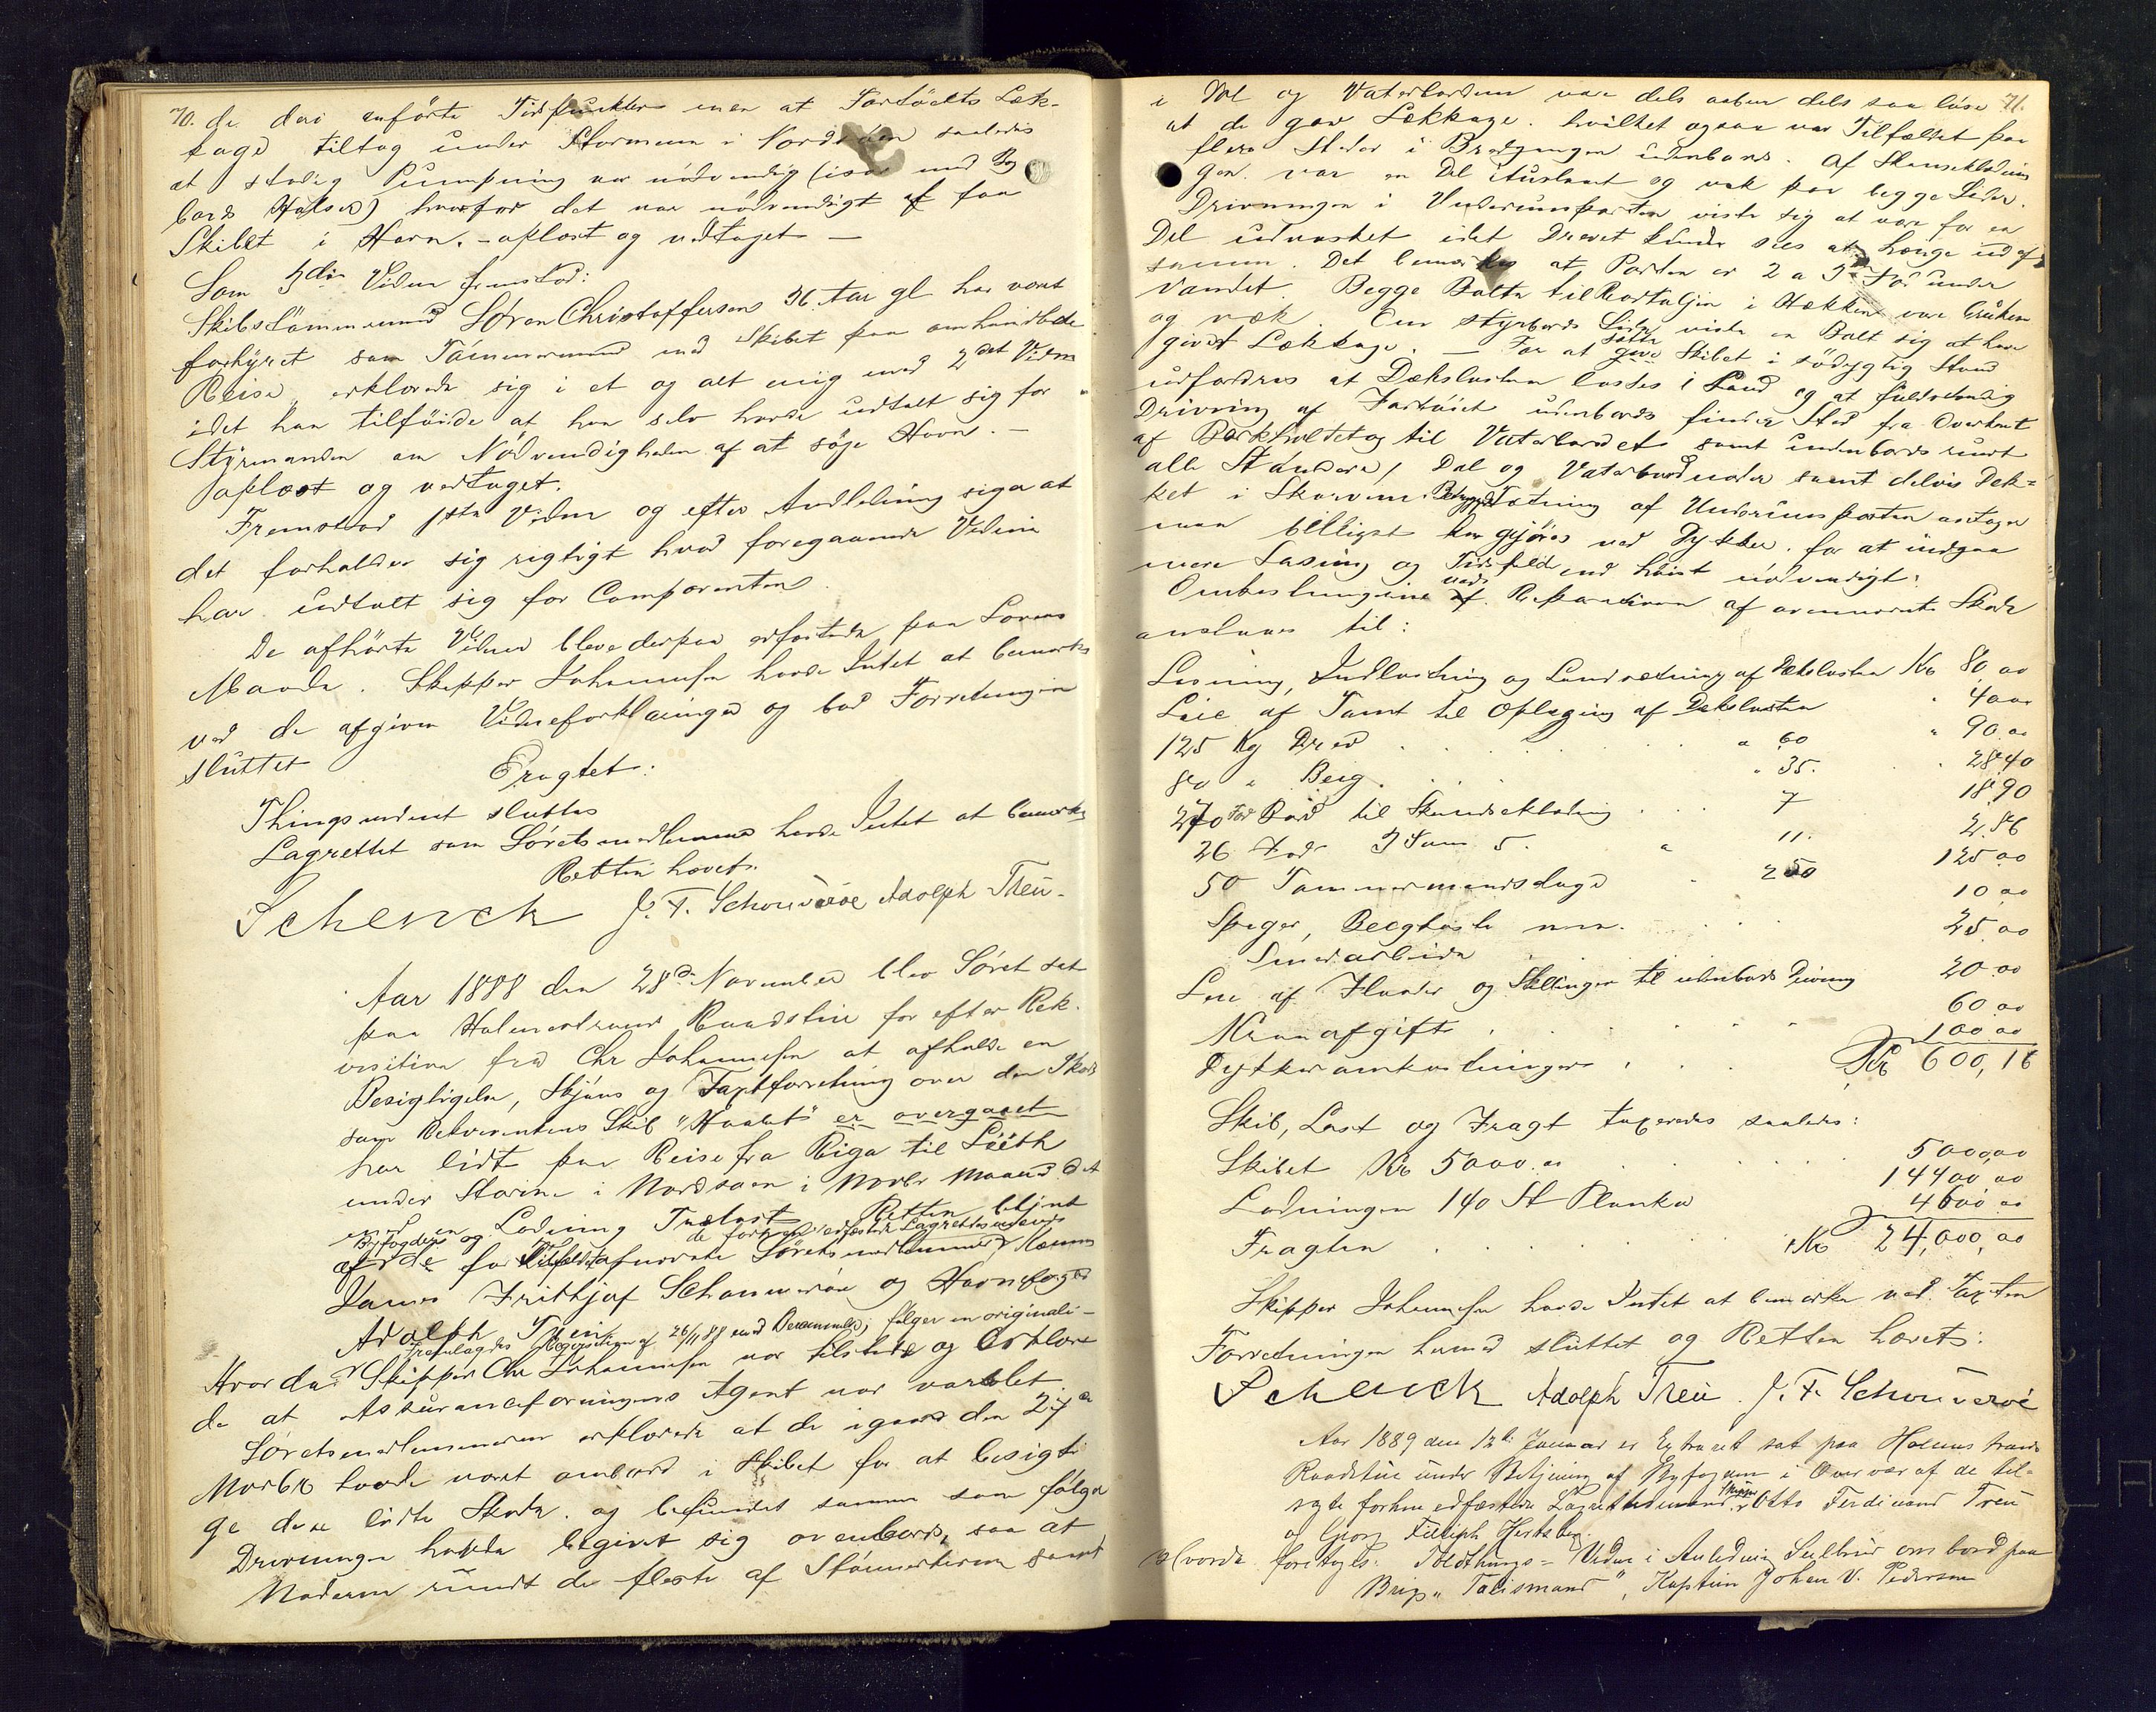 70. de deri anförte Tidspunkter men at Fartöiets Læk-
kage tiltog under Stormene i Nordsöen saaledes
at stadig Pumpning var nödvendig (især med Bag
bords Halser) hvorfor det var nödvendigt at faa
Skibet i Havn. - oplæst og vedtaget -
Som 3die Vidne fremstod:
Skibstömmermand Sören Christoffersen 36 Aar gl har været
forhyret som Tömmermand med Skibet paa omhandlede
Reise, erklærede sig i et og alt enig med 2det Vidne
idet han tilföiede at han selv havde udtalt sig for
Styrmanden om Nödvendigheden af at söge Havn. -
oplæst og vedtaget.
Fremstod 1ste Vidne og efter Anledning siger at
det forholder sig rigtigt hvad foregaaende Vidne
har udtalt sig for Comparenten.
De afhörte Vidner bleve derpaa edfæstede paa Lovens
Maade. Skipper Johannesen havde Intet at bemærke
ved de afgivne Vidneforklaringer og bad Forretningen
sluttet
Eragtet:
Thingsvidnet sluttes
Lagrettet som Söretsmedlemmer havde Intet at bemærke
Retten hævet.
Schenck J. F. Schouveröe Adolph Treu.
Aar 1888 den 28de November blev Söret sat
paa Holmestrands Raadstue for efter Rek-
visition fra Chr Johannesen at afholde en
Besigtigelse, Skjöns og Taxtforretning over den Skade
som Rekvirentens Skib "Haabet" er overgaaet
har lidt paa Reise fra Riga til Leith
under Storme i Nordsöen i Novbr Maaned d A
med en Ladning Trælast Retten betjent
Byfogden og de forhen edfæstede Lagrettesmænd
af de for Tilfældet opnævnte Söretsmedlemmer Kæmner
James Frithjof Schouveröe og Havnefoged
Adolph Treu
Fremlagdes Reqvisition af 26/11 88 med Berammelse, fölger in originali -
Hvorda Skipper Chr Johannesen var tilstede og erklære
de at Assuranceforeningens Agent var varslet
Söretsmedlemmerne erklærede at de igaar den 27de
Novbr havde været ombord i Skibet for at besigti
ge dens lidte Skade. og befundet samme som fölger
Drivningen havde begivet sig ovenbords, saa at
Naderne rundt de fleste af Stönnerterne samt
71.
i Dæl og Vaterbordene vare dels aaben dels saa löse
at de gav Lækkage. hvilket ogsaa var Tilfældet paa
flere Steder i Bredgangen udenbords. Af Skanseklædnin
gen. var en Del ituslaaet og væk paa begge Sider.
Drivningen i Underrumsporten viste sig at være for en
Del udvasket idet Drevet kunde sees at hænge ud af
samme. Det bemærkes at Porten er 2 a 3 Fod under
Vandet. Begge Bolte til Rortaljen i Hækken vare brukne
og væk. Om styrbords Side viste en Bolt sig at have
givet Lækkage. - For at sætte Skibet i södygtig Stand
udfordres at Dækslasten losses i Land og at fuldstændig
Drivning af Fartöiet udenbords finder Sted fra Overkant
af Barkholtet og til Vaterbordet samt indenbords rundt
alle Ständere, Dæl og Vaterbordnader samt delvis Dæk-
ket i Skarvene. Tætning af Underrumsporten antager
man billigst kan gjöres ved Dykker. for at undgaa
mere Losning og Tidsspild end höist nödvendigt.
Omkostningerne ved Reparation af ovennævnte Skade
anslaaes til:
Losning, Indlastning og Landsætning af Dækslasten Kr 80,00
Leie af Tomt til Oplæging af Dækslasten " 40,00
125 Kg Drev . . . . . . " 60 " 90.00
80 " Beg . . . " 35. . 28.40
270 Fod Bord til Skandseklædning . . . 7 18.90
26 Fods 3 Tom 5. " 11. 2.86
50 Tömmermandsdage . 250 125.00
Spiger, Begkoste m.m. . . . 10.00
Smedarbeide 25.00
Leie af Flaader og Stellinger til udenbords Drivning 20.00
Kranafgift . . . . . 60.00
Dykkeromkostninger . . . 100.00
Kr 600,16
Skib, Last og Fragt taxeredes saaledes:
Skibet Kr 5000.00 . . . . . 5000,00
Ladningen 140 St Planker 14400,00
Fragten . . . . . . 4600.00
Kr 24,000,00
Skipper Johannesen havde Intet at bemærke ved Taxten
Forretningen hermed sluttet og Retten hævet.
Schenck Adolph Treu. J. F. Schouveröe
Aar 1889 den 12te Januar er Extraret sat paa Holmestrands
Raadstue under Betjening af Byfogden i Overvær af de til-
sagte forhen edfæstede Lagrettesmænd Skipper Otto Ferdinand Treu
og Georg Filliph Hertsberg.
Hvorda foretoges: Tolkthings-Vidne i Anledning Selbrud om bord paa
Brig "Talismand", Kaptein Johan V. Pedersen